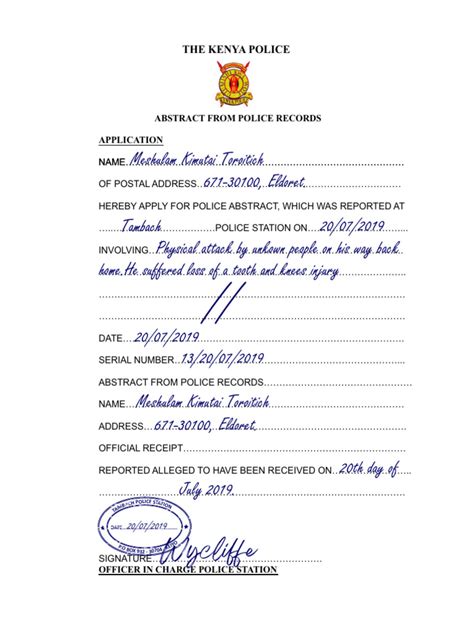 THE KENYA POLICE
ABSTRACT FROM POLICE RECORDS
APPLICATION
NAME Meshulam Kimutai Toroitich
OF POSTAL ADDRESS 671-30100, Eldoret.
HEREBY APPLY FOR POLICE ABSTRACT, WHICH WAS REPORTED AT
Tambach POLICE STATION ON 20/07/2019
INVOLVING Physical attack by unkown people on his way back
home. He suffered loss of a tooth and knees injury
//
DATE 20/07/2019
SERIAL NUMBER 13/20/07/2019
ABSTRACT FROM POLICE RECORDS
NAME Meshulam Kimutai Toroitich
ADDRESS 671-30100, Eldoret.
OFFICIAL RECEIPT
REPORTED ALLEGED TO HAVE BEEN RECEIVED ON 20th day of
July 2019.
TAMBACH POLICE STATION
DATE: 20/07/2019
P.O BOX 932 - 30704
SIGNATURE Wycliffe
OFFICER IN CHARGE POLICE STATION